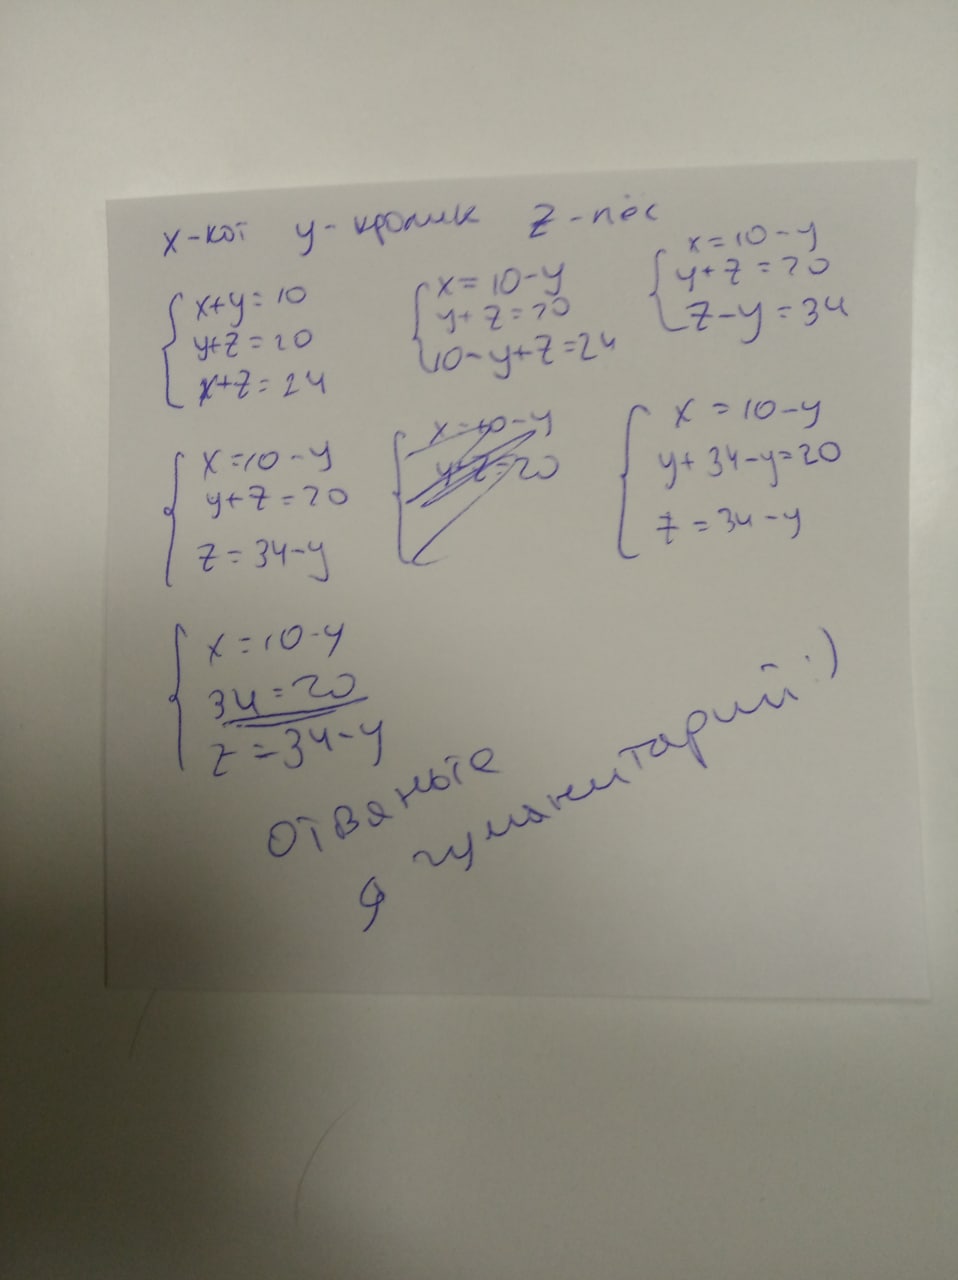 x-кот y-кролик z-пёс
x+y=10
y+z=20
x+z=24
x=10-y
y+z=20
10-y+z=24
x=10-y
y+z=20
z-y=34
x=10-y
y+z=20
z=34-y
x=10-y
y+z=20
x=10-y
y+34-y=20
z=34-y
x=10-y
34=20
z=34-y
отвяньте
я гуманитарий:)